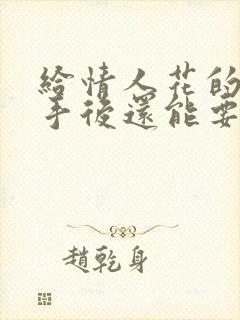 給情人花的
手後還能要
趙乾身